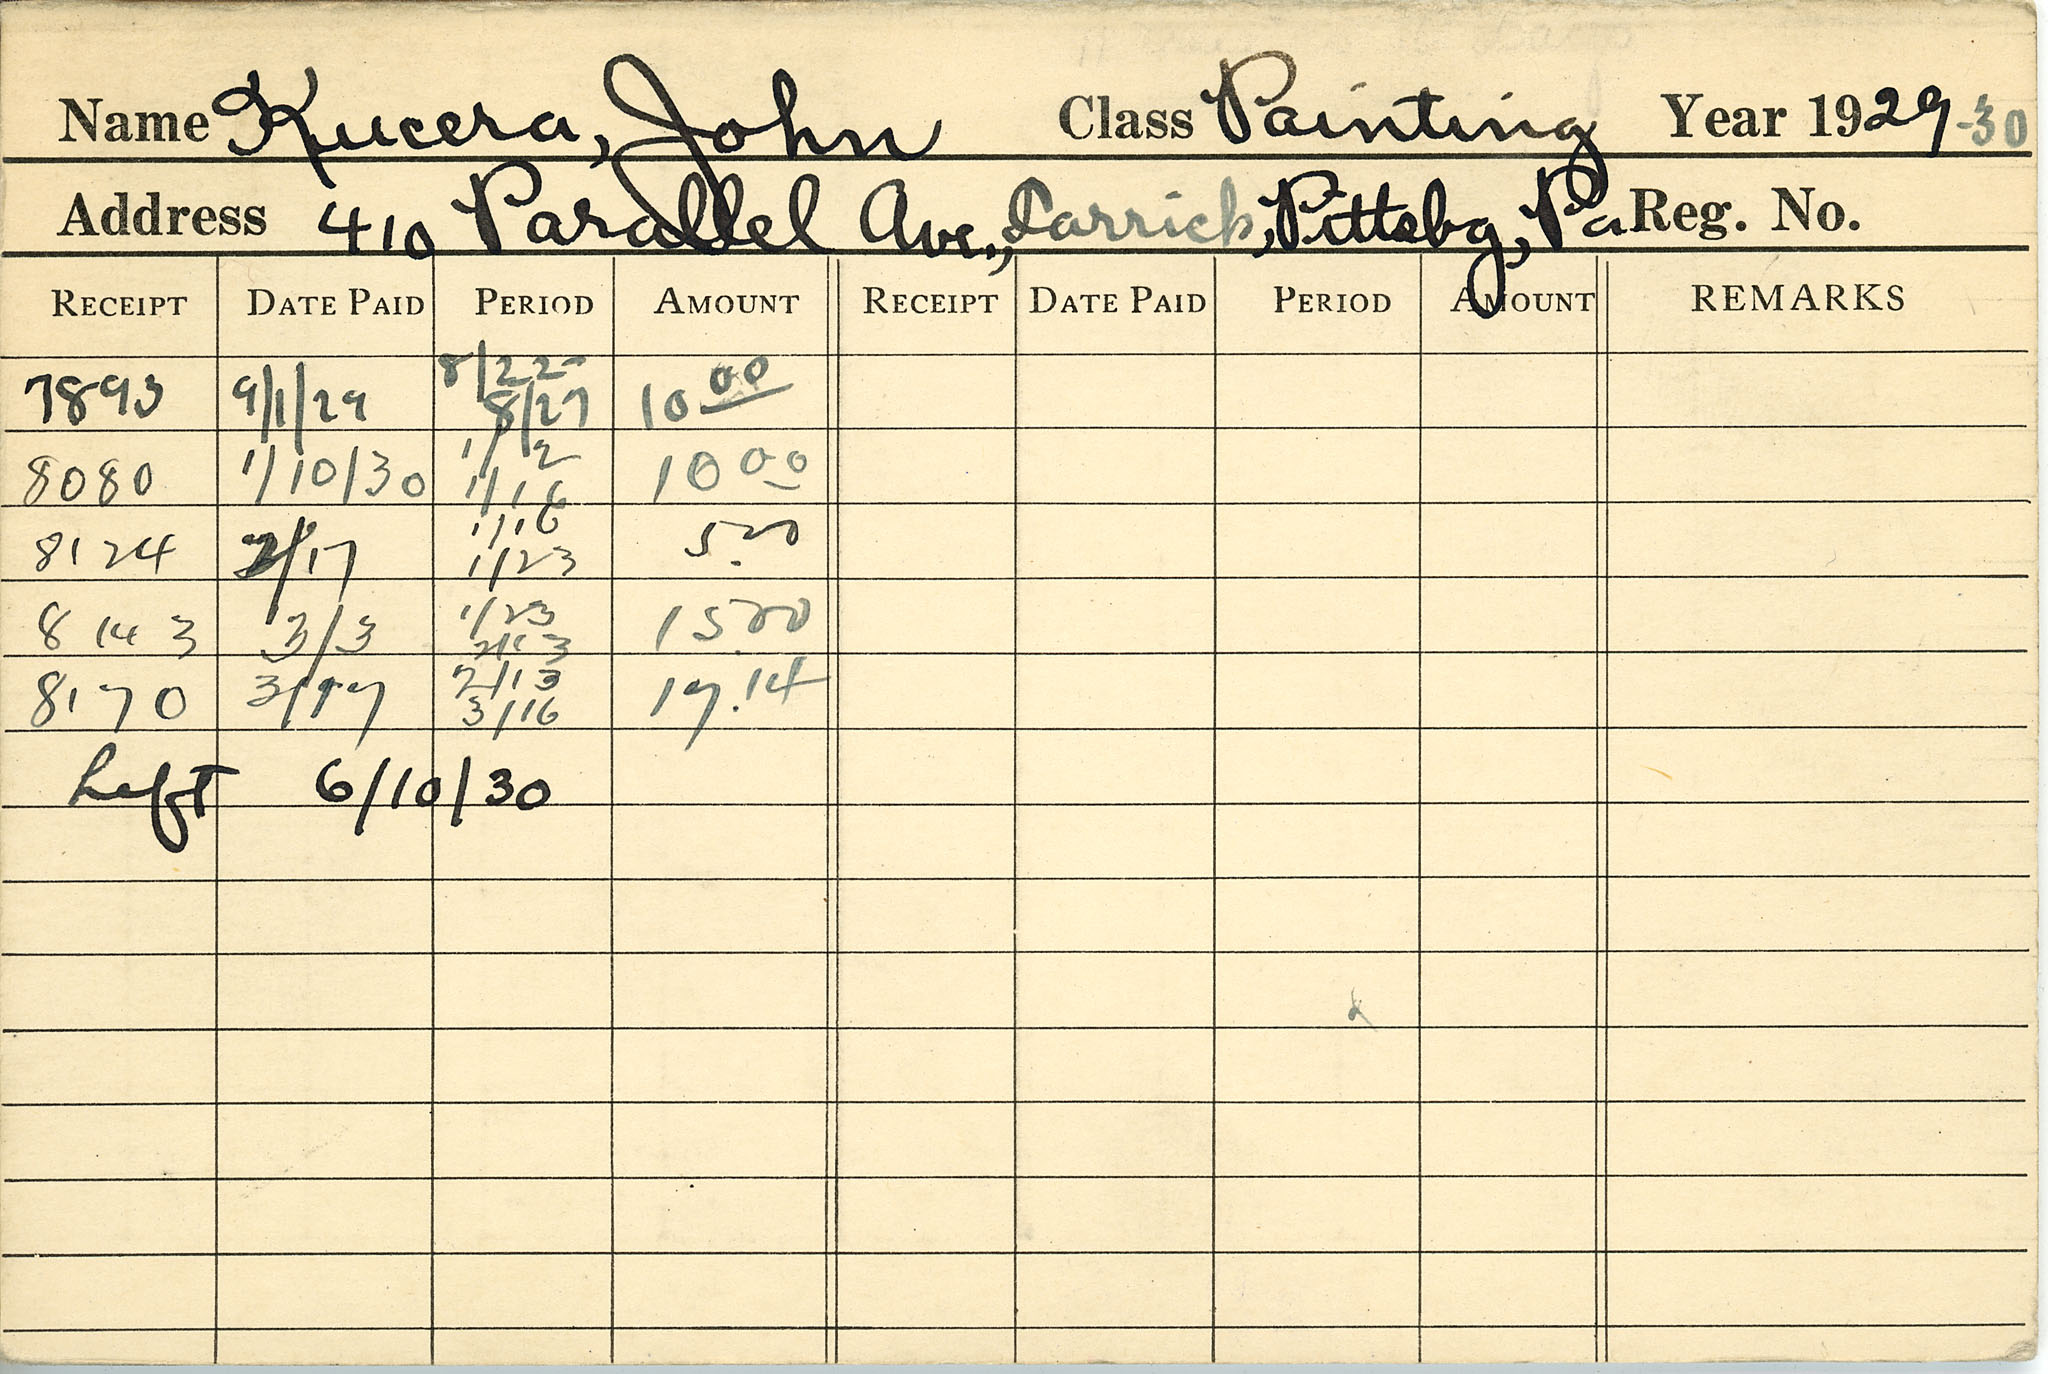 Name Kucera, John Class Painting Year 1929-30
Address 410 Parallel Ave., Carrick, Pittsbg, Pa Reg. No.
RECEIPT DATE PAID PERIOD AMOUNT RECEIPT DATE PAID PERIOD AMOUNT REMARKS
8/22-
7893 9/1/29 8/27 10 00
1/2
8080 1/10/30 1/16 10 00
1/16
8124 2/17 1/23 5.00
1/23
8143 3/3 2/13 15.00
2/13
8170 3/17 3/16 17.14
Left 6/10/30